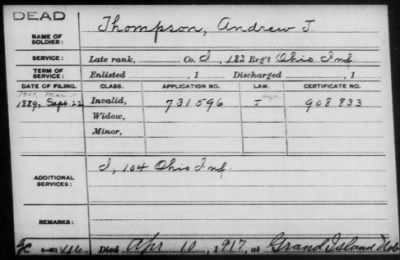 DEAD
NAME OF SOLDIER: Thompson, Andrew J.
SERVICE: Late rank, Co. I, 183 Reg't Ohio Inf
TERM OF SERVICE: Enlisted , 1 Discharged , 1
DATE OF FILING. CLASS. APPLICATION NO. LAW. CERTIFICATE NO.
1889, Sept 22 Invalid, 731596 J 908833
Widow,
Minor,
ADDITIONAL SERVICES: I, 104 Ohio Inf.
REMARKS:
Died Apr 10, 1917, at Grand Island Neb